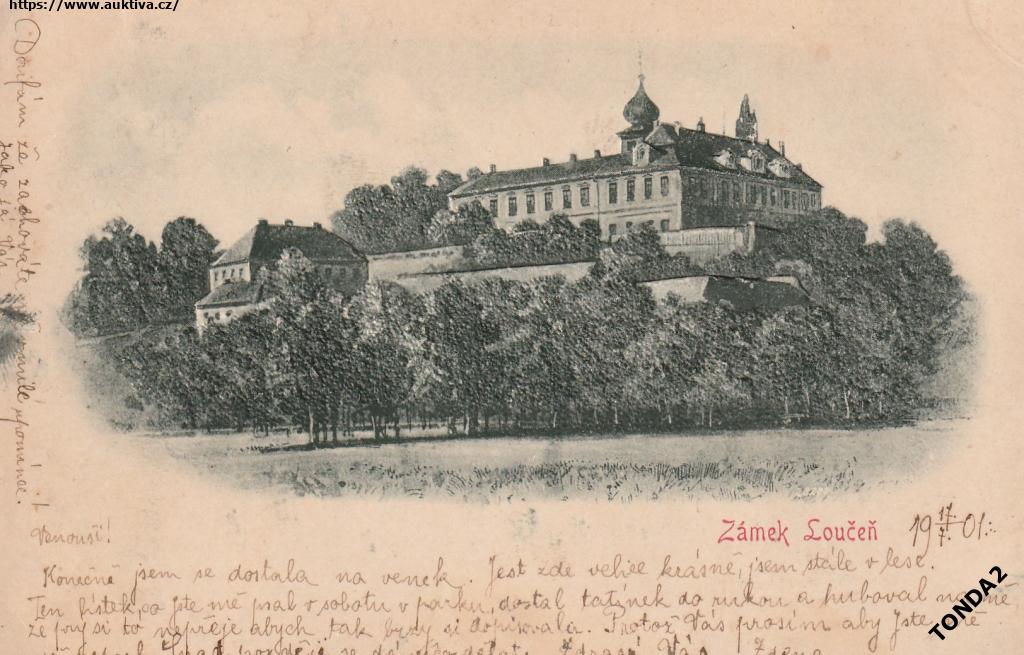 https://www.auktiva.cz/
(Doufám že zachováte v milé upomínce!
jako já Vás
Zámek Loučeň 19 17/7 01.
Venouši!
Konečně jsem se dostala na venek. Jest zde velice krásně, jsem stále v lese.
Ten lístek, co jste mě psal v sobotu v parku, dostal tatínek do rukou a huboval na mě,
že prý si to nepřeje abych tak brzy si dopisovala. Protož Vás prosím aby jste
se dá Zdraví Vás Zdena
TONDA2